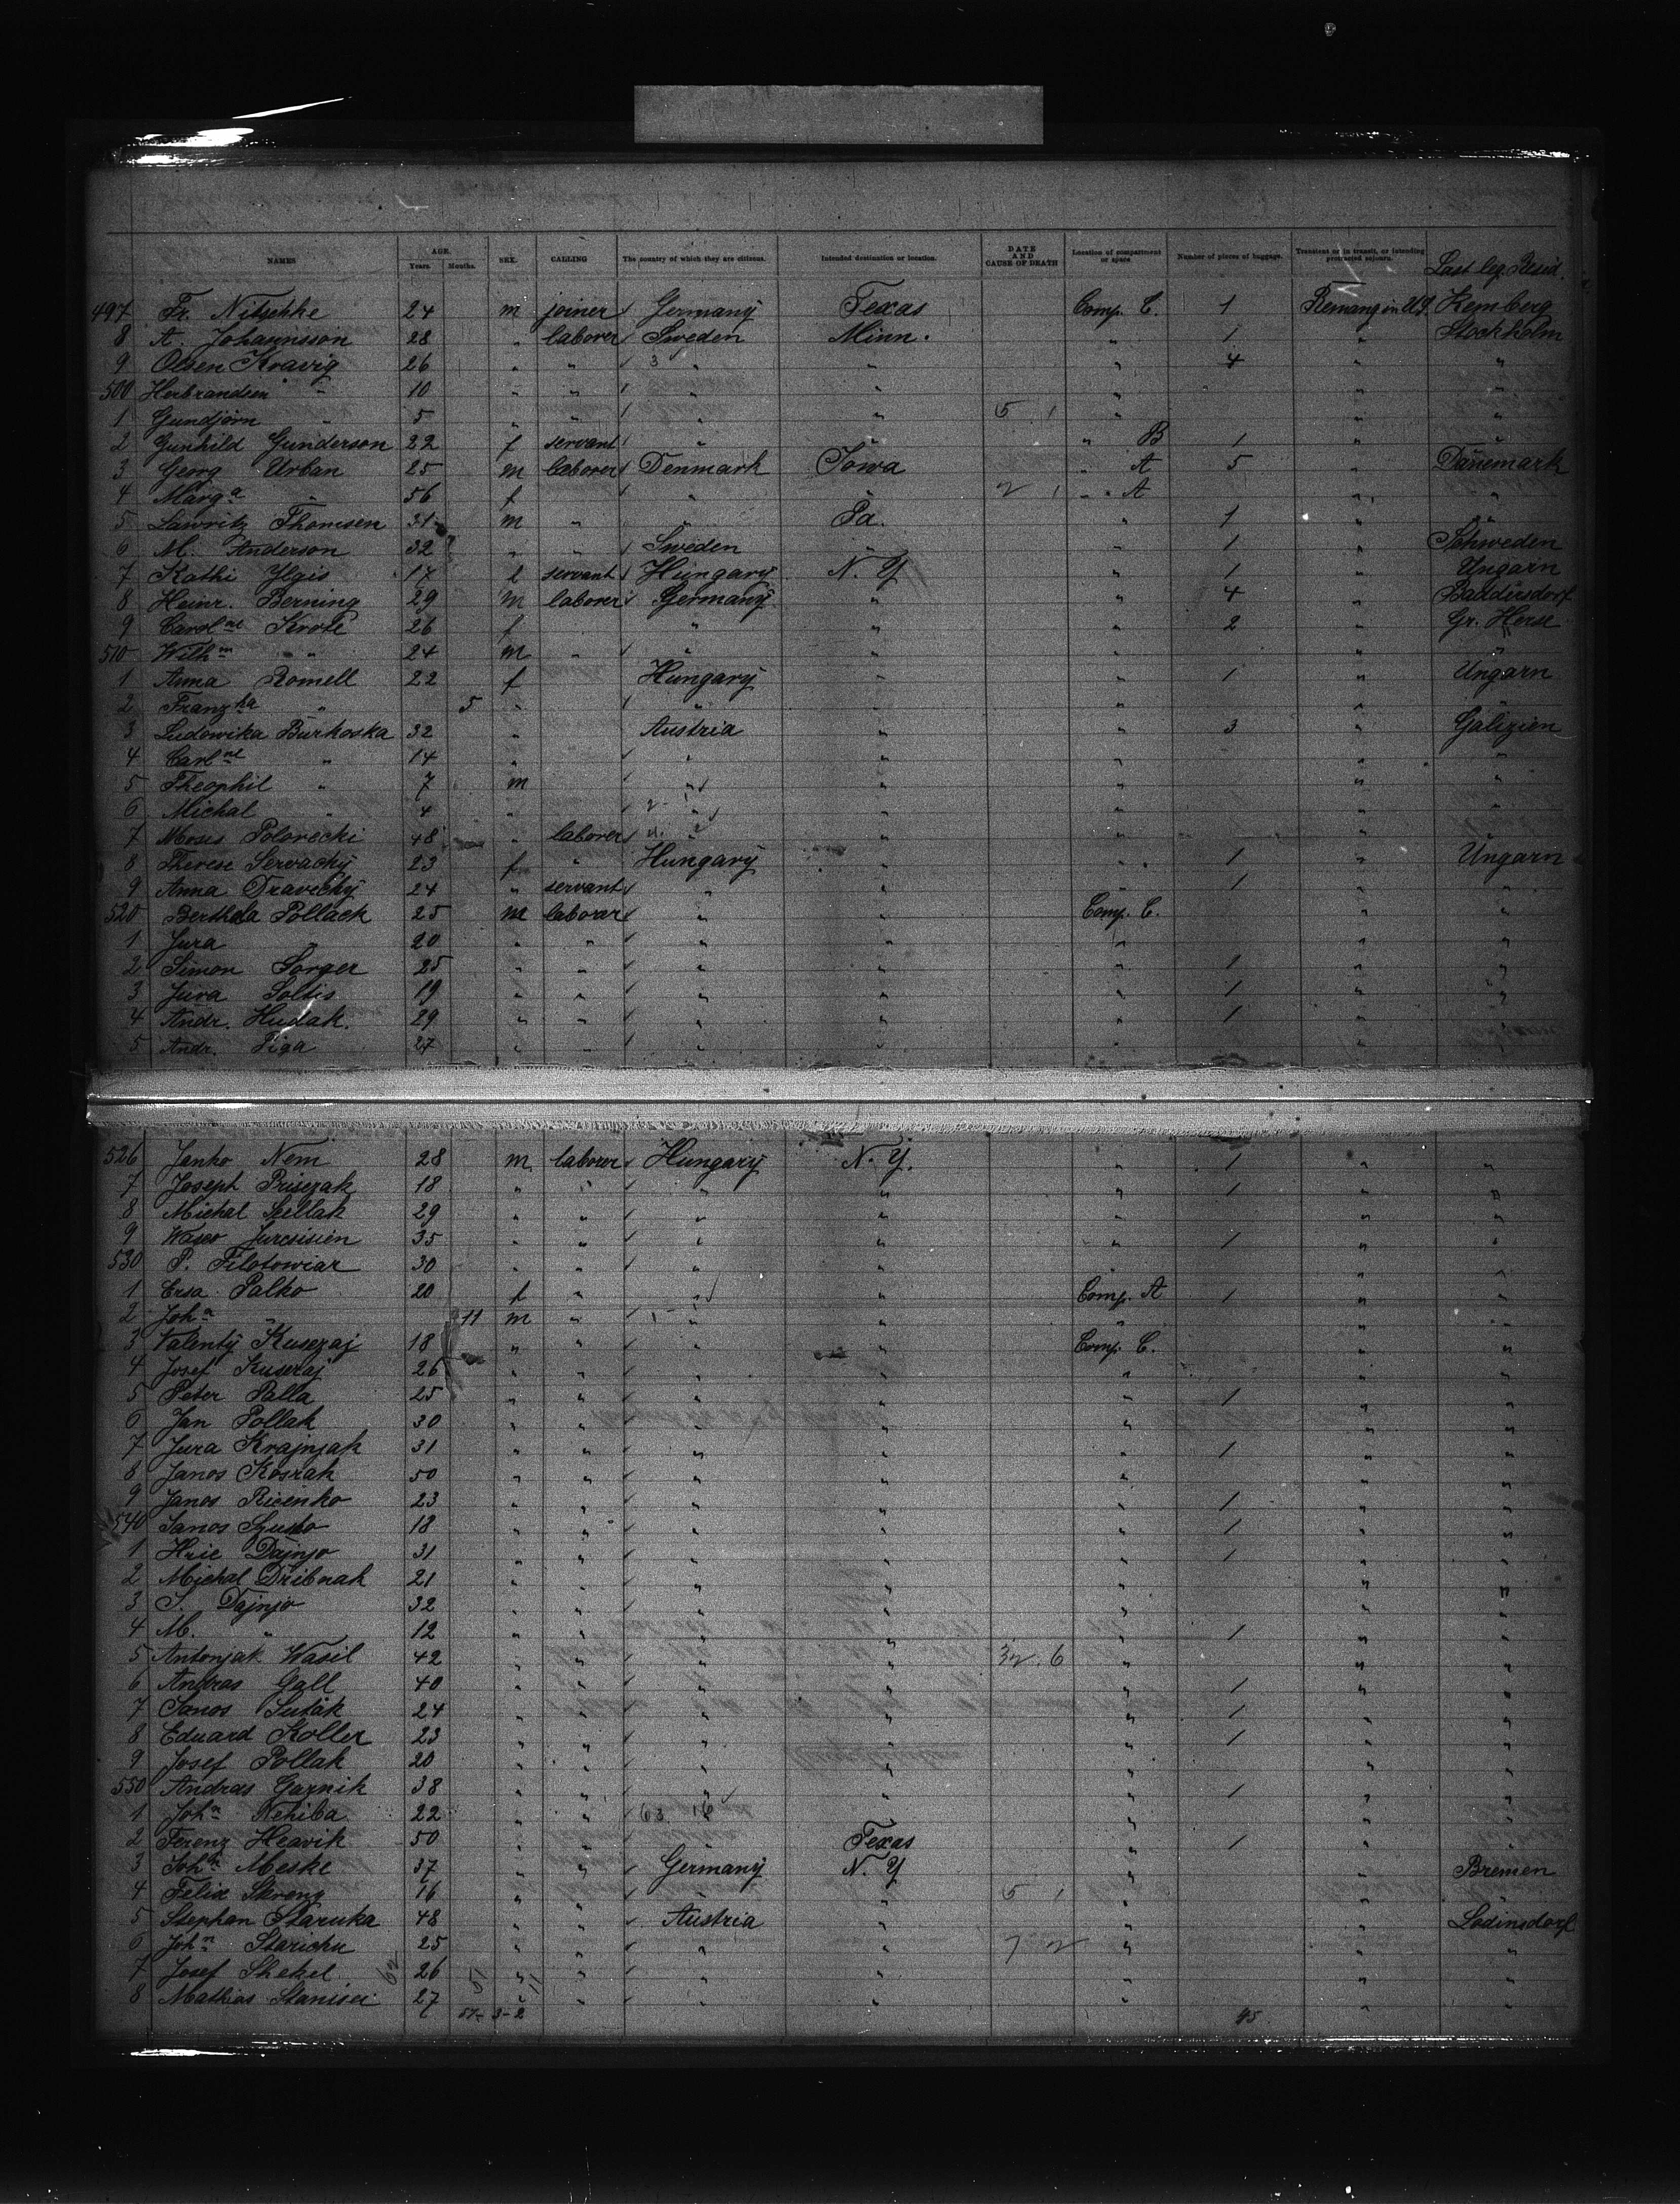 NAMES AGE. Years. Months. SEX. CALLING The country of which they are citizens. Intended destination or location. DATE AND CAUSE OF DEATH Location of compartment or space. Number of pieces of baggage. Transient or in transit, or intending protracted sojourn. Last leg. Resid.
497 Fr. Nitschke 24 m joiner Germany Texas Comp. C. 1 Kemberg
8 A. Johannsson 28 " laborer Sweden Minn. " 1 " Stockholm
9 Olsen Kravig 26 " " 3 " " " 4 " "
500 Herbrandsen " 10 " " " " " " "
1 Gundjörn " 5 " " " " 5 1 " " "
2 Gunhild Gunderson 22 f servant " " " B 1 " "
3 Georg Urban 25 m laborer Denmark Iowa " A 5 " Dänemark
4 Marga " 56 f " " 2 1 " A " "
5 Lawritz Thomsen 21 m " " Pa. " 1 " "
6 M. Anderson 32 " " Sweden " " 1 " Schweden
7 Kathi 17 f servant Hungary N. Y " 1 " Ungarn
8 Heinr. Berning 29 m laborer Germany " " 4 "
9 Carolne Krote 26 f " " " 2 " Gr. Herse
510 Wilhm " 24 m " " " " " "
1 Anna Romell 22 f Hungary " " 1 " Ungarn
2 Franzka " 5 " " " " " "
3 Ludowika Burkoska 32 " Austria " " 3 " Galizien
4 Carlne " 14 " " " " " "
5 Theophil " 7 m " " " " "
6 Michal " 4 " 2 " " " " "
7 Moses Polorecki 48 " laborer " " " " " "
8 Therese Servachy 23 f " Hungary " " 1 " Ungarn
9 Anna Dravecky 24 " servant " " " 1 " "
520 Pollack 25 m laborar " " Comp. C. " "
1 Jura " 20 " " " " " " "
2 Simon Sorger 25 " " " " " 1 " "
3 Jura Soltis 19 " " " " " 1 " "
4 Andr. Hudak. 29 " " " " " 1 " "
5 Andr. Piga 27 " " " " " " "
526 Janko Nemi 28 m laborer Hungary N. Y. " 1 " "
7 Joseph Prisezak 18 " " " " " 1 " "
8 Michal 29 " " " " " " "
9 35 " " " " " 1 " "
530 P. Filotowiar 30 " " " " " "
1 Ersa Palko 20 f " " " Comp. A 1 " "
2 Johan " 11 m " 1 " " " " "
3 Valenty Kusezaj 18 " " " " Comp. C. " "
4 Josef Kusezaj 26 " " " " " " "
5 Peter Palla 25 " " " " " 1 " "
6 Jan Pollak 30 " " " " " " "
7 Jura Krajnjak 31 " " " " " 1 " "
8 Janos Kosrak 50 " " " " " " "
9 Janos Ricenko 23 " " " " " 1 " "
540 Janos 18 " " " " " 1 " "
1 Hric Dajnjo 31 " " " " " 1 " "
2 Michal Dribnak 21 " " " " " " "
3 S. Dajnjo 32 " " " " " " "
4 M. " 12 " " " " " 1 " "
5 Antonjak Wasil 42 " " " " 32 6 " " "
6 Andras Gall 40 " " " " " 1 " "
7 Janos Sutak 24 " " " " " 1 " "
8 Eduard Koller 23 " " " " " 1 " "
9 Josef Pollak 20 " " " " " " "
550 Andras Gaznik 38 " " " " " 1 " "
1 Johan Rehiba 22 " " 63 16 " " " "
2 Ferenz Heavik 50 " " " Texas " 1 " "
3 Johan Meske 37 " " Germany N. Y " " Bremen
4 Felix 16 " " " " 5 1 " " "
5 Stephan Staruka 48 " " Austria " " " Lodinsdorf
6 Johan Starichu 25 " " " " 7 2 " " "
7 Josef Shekel 26 " " " " " " "
8 Mathias Stanisci 27 " " " " " " "
3-2 45